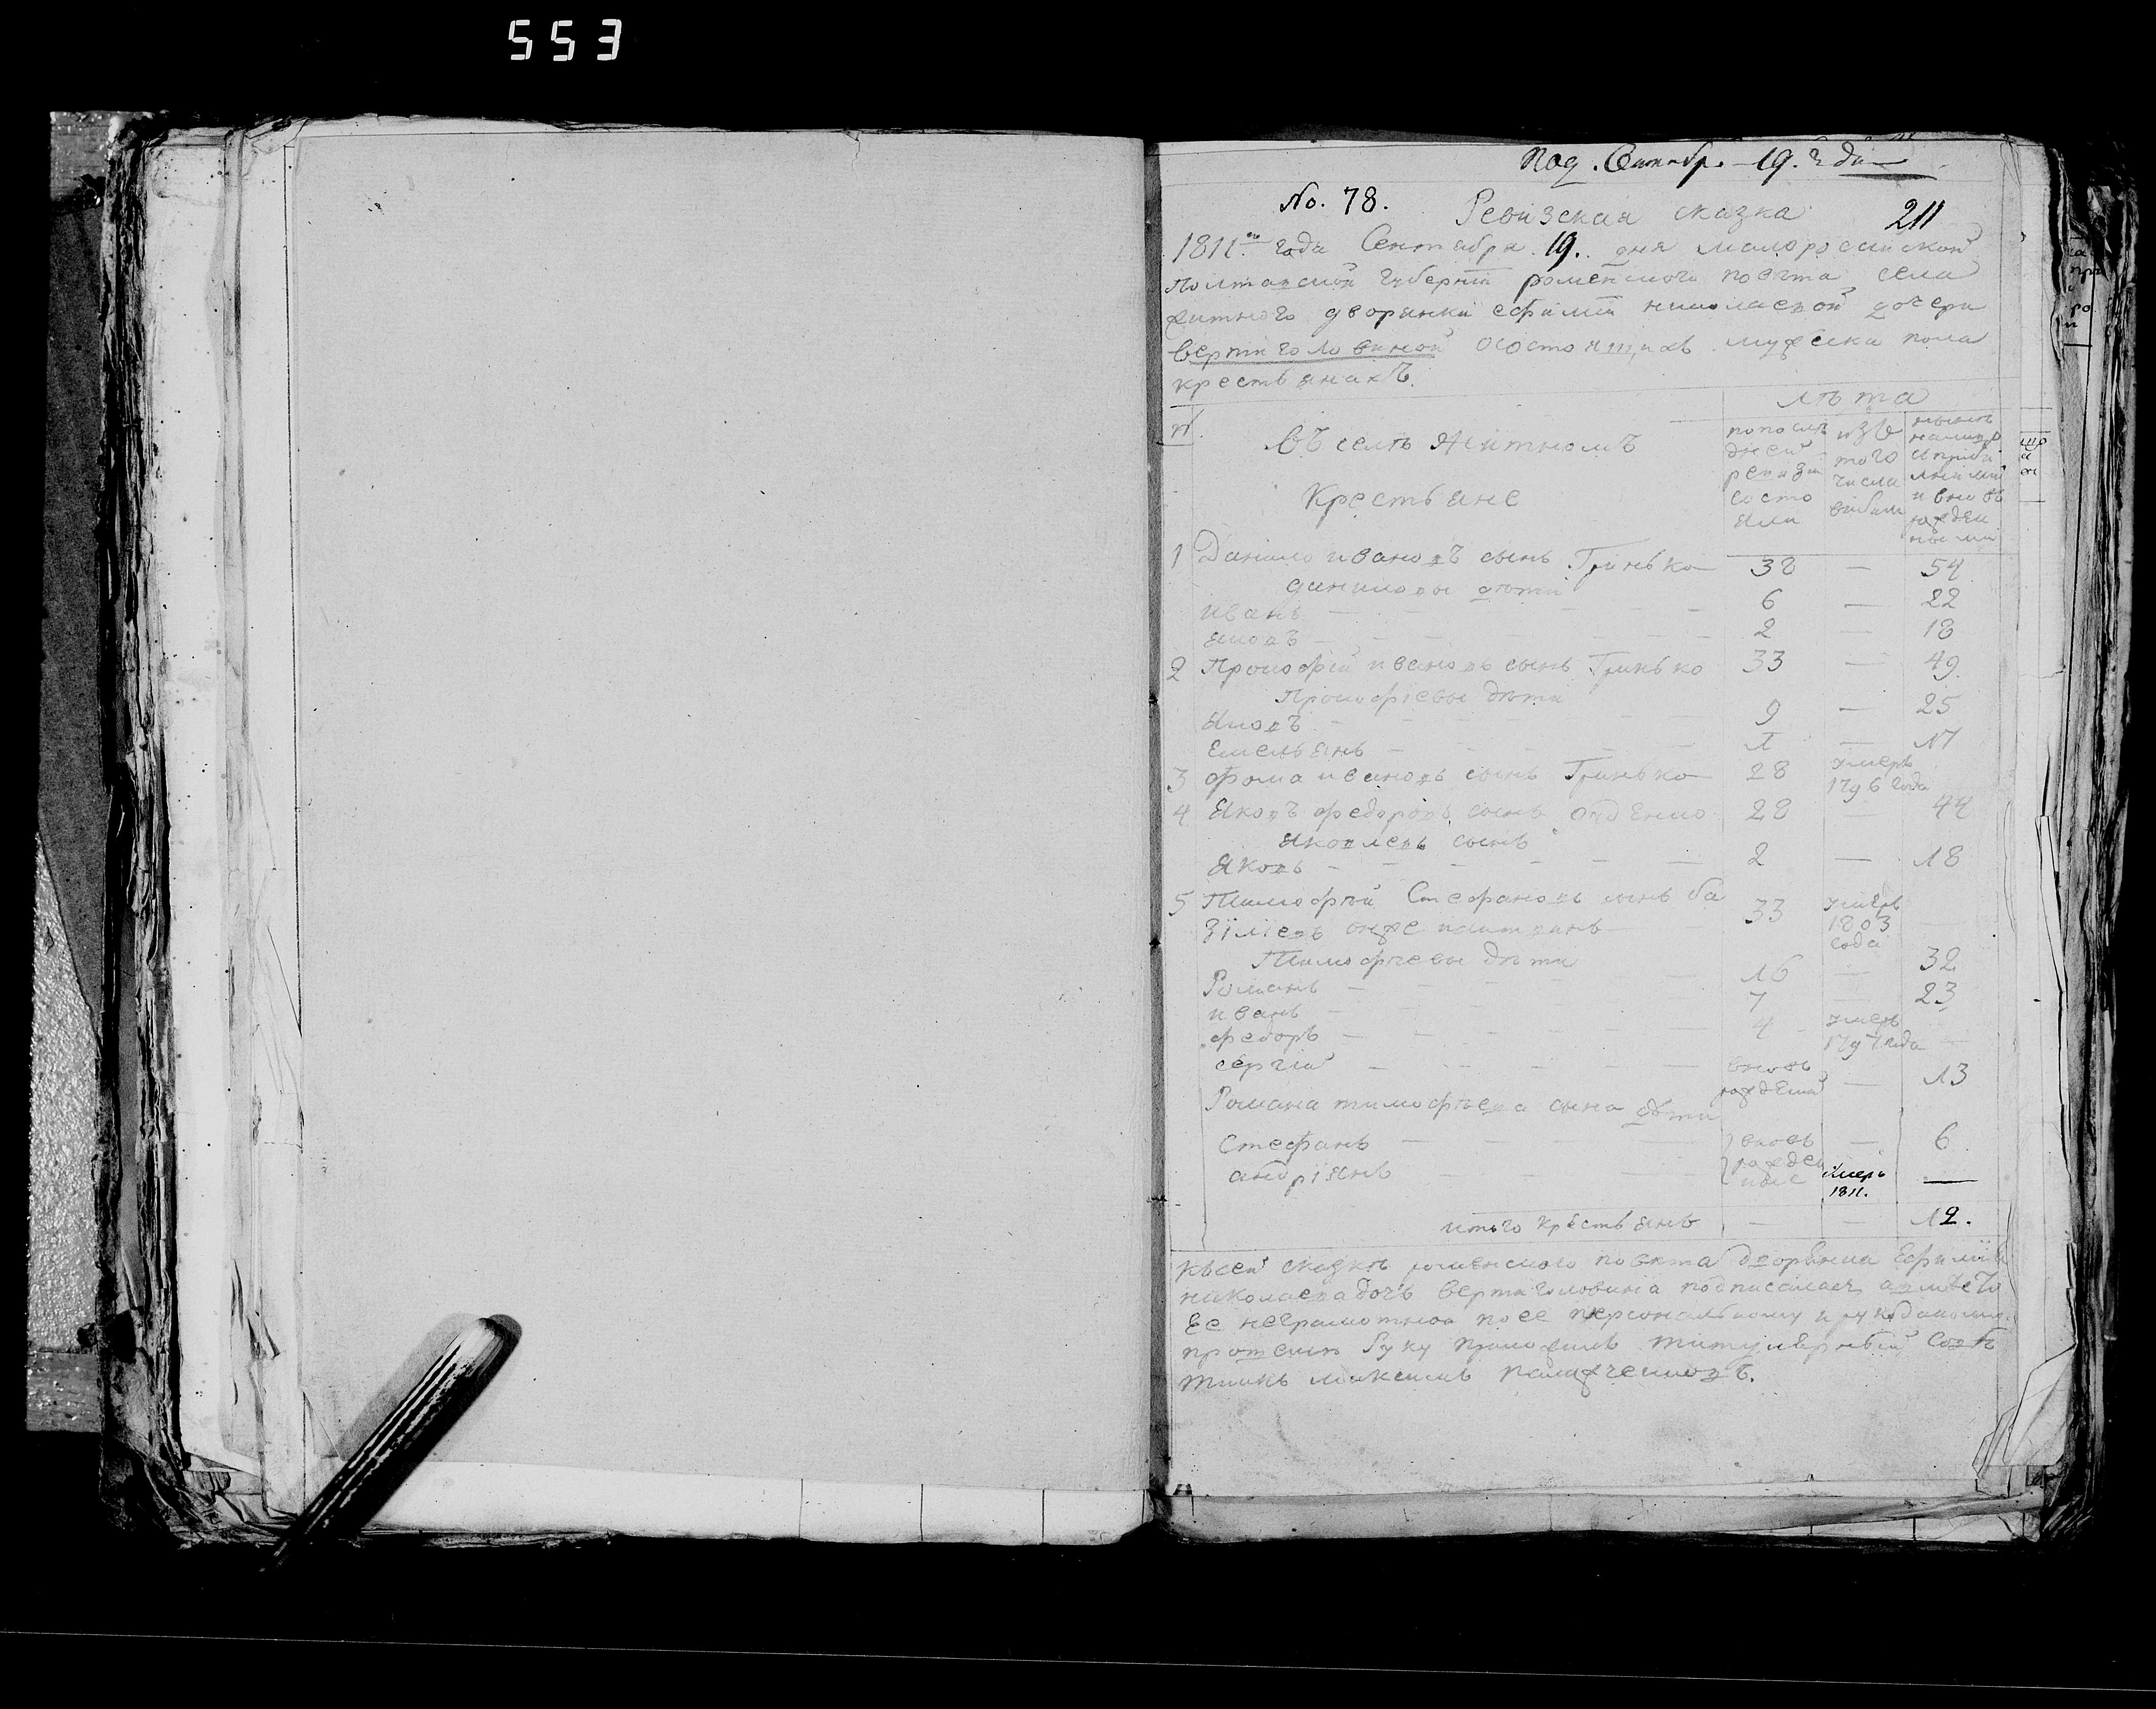 553
Под. Сентябр. 19. дня
No. 78.
211
Ревизская сказка
1811го года Сентября 19. дня малороссийской
Полтавской губернии роменского повѣта села
житного дворянки ефимии николаевой дочери
вертиголовиной осостоящихъ мужеска пола
крестьянахъ.
лѣта
въ селѣ Житномъ
Крестьяне
попослѣ
дней
ревизии
состо
яли
изъ
того
числа
выбыли
нынѣ
налицо
сприбы
лыми
и вновь
рожден
ными
1 Данило ивановъ сынъ Гринько 38 — 54
даниловы дѣти
иванъ — 6 — 22
яковъ — 2 — 18
2 Прокофий ивановъ сынъ Гринько 33 — 49
Прокофиевы дѣти
Яковъ — 9 — 25
Емельянъ — 1 — 17
3 фома ивановъ сынъ Гринько 28 умеръ 1796 года
4 Яковъ федоровъ сынъ 28 — 44
яковлевъ сынъ
Яковъ — 2 — 18
5 Тимофѣй Стефановъ сынъ ба
зилевъ онже 33 умеръ 1803 года —
Тимофѣевы дѣти
Романъ — 16 — 32
иванъ — 7 — 23
федоръ — 4 умеръ 1797 года —
сергий — вновь рожденый — 13
Романа тимофѣева сына дѣти
Стефанъ — вновь — 6
андріянъ — рожденые умеръ 1811. —
итого крестьянъ — — 12.
ксей сказкѣ роменского повѣта дворянка Ефимия
николаева дочь вертиголовина подписалась авмѣсто
ее неграмотной по ее персональному и рукоданому
прошению руку приложилъ титулярный совѣ
тникъ максимъ